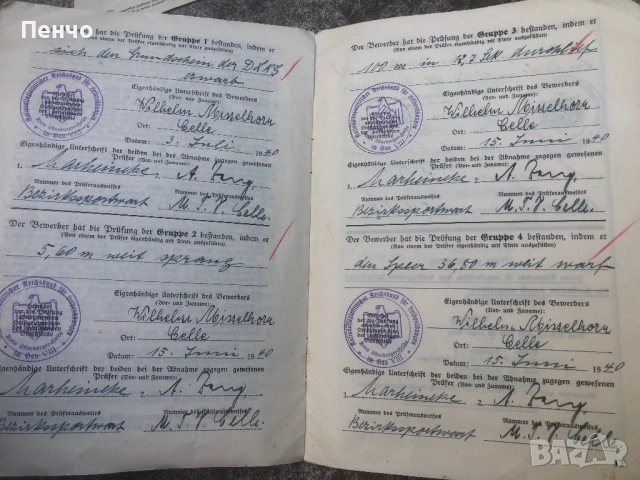 Pencho
Der Bewerber hat die Prüfung der Gruppe 1 bestanden, indem er
(Von einem der Prüfer eigenhändig mit Tinte auszufüllen)
sich den Grundschein der DLRG
erwarb
Eigenhändige Unterschrift des Bewerbers
(Vor- und Zuname):
Wilhelm Misselhorn
Ort: Celle
Datum: 3. Juli 1940
Eigenhändige Unterschrift der beiden bei der Abnahme zugegen gewesenen
Prüfer (Vor- und Zuname):
1. Marheineke 2. A. Jung
Nummer des Prüferausweises Nummer des Prüferausweises
Bezirkssportwart M. T. V. Celle.
Der Bewerber hat die Prüfung der Gruppe 2 bestanden, indem er
(Von einem der Prüfer eigenhändig mit Tinte auszufüllen)
5,60 m weit sprang
Eigenhändige Unterschrift des Bewerbers
(Vor- und Zuname):
Wilhelm Misselhorn
Ort: Celle
Datum: 15. Juni 1940
Eigenhändige Unterschrift der beiden bei der Abnahme zugegen gewesenen
Prüfer (Vor- und Zuname):
1. Marheineke 2. A. Jung
Nummer des Prüferausweises Nummer des Prüferausweises
Bezirkssportwart M. T. V. Celle.
Der Bewerber hat die Prüfung der Gruppe 3 bestanden, indem er
(Von einem der Prüfer eigenhändig mit Tinte auszufüllen)
100 m in 12,7 Sek durchlief
Eigenhändige Unterschrift des Bewerbers
(Vor- und Zuname):
Wilhelm Misselhorn
Ort: Celle
Datum: 15. Juni 1940
Eigenhändige Unterschrift der beiden bei der Abnahme zugegen gewesenen
Prüfer (Vor- und Zuname):
1. Marheineke 2. A. Jung
Nummer des Prüferausweises Nummer des Prüferausweises
Bezirkssportwart M. T. V. Celle.
Der Bewerber hat die Prüfung der Gruppe 4 bestanden, indem er
(Von einem der Prüfer eigenhändig mit Tinte auszufüllen)
den Speer 36,80 m weit warf
Eigenhändige Unterschrift des Bewerbers
(Vor- und Zuname):
Wilhelm Misselhorn
Ort: Celle
Datum: 15. Juni 1940
Eigenhändige Unterschrift der beiden bei der Abnahme zugegen gewesenen
Prüfer (Vor- und Zuname):
1. Marheineke 2. A. Jung
Nummer des Prüferausweises Nummer des Prüferausweises
Bezirkssportwart M. T. V. Celle.
BAZAR
bg